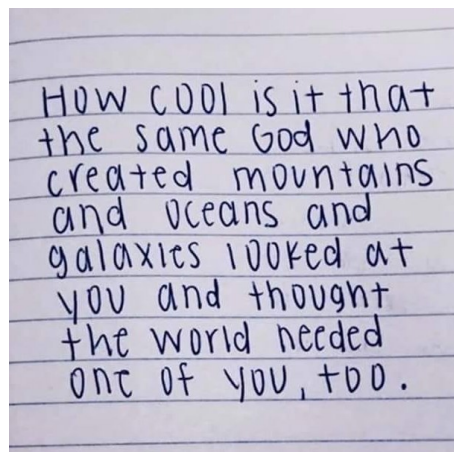 HOW COOl is it that
the same God who
created mountains
and oceans and
galaxies looked at
you and thought
the world needed
one of you, too.